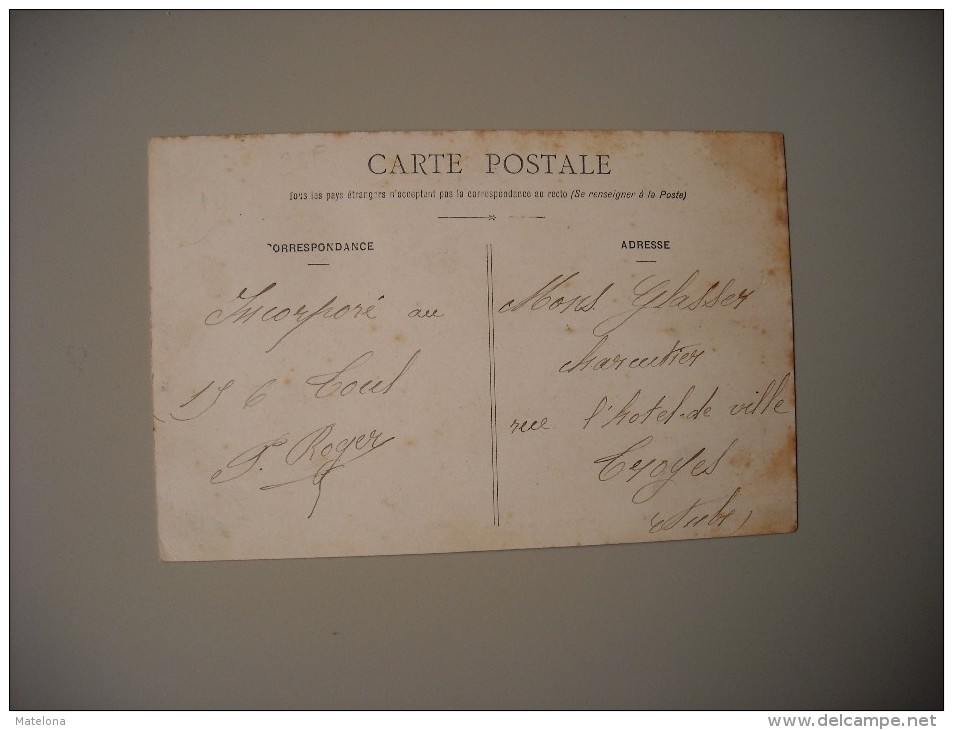 CARTE POSTALE
Tous les pays étrangers n'acceptant pas la correspondance au recto (Se renseigner à la Poste)
CORRESPONDANCE
Incorporé au
156 Toul
F. Roger
ADRESSE
Mons. Glasser
charcutier
rue l'hotel-de ville
Troyes
(Aube)
Matelona
www.delcampe.net